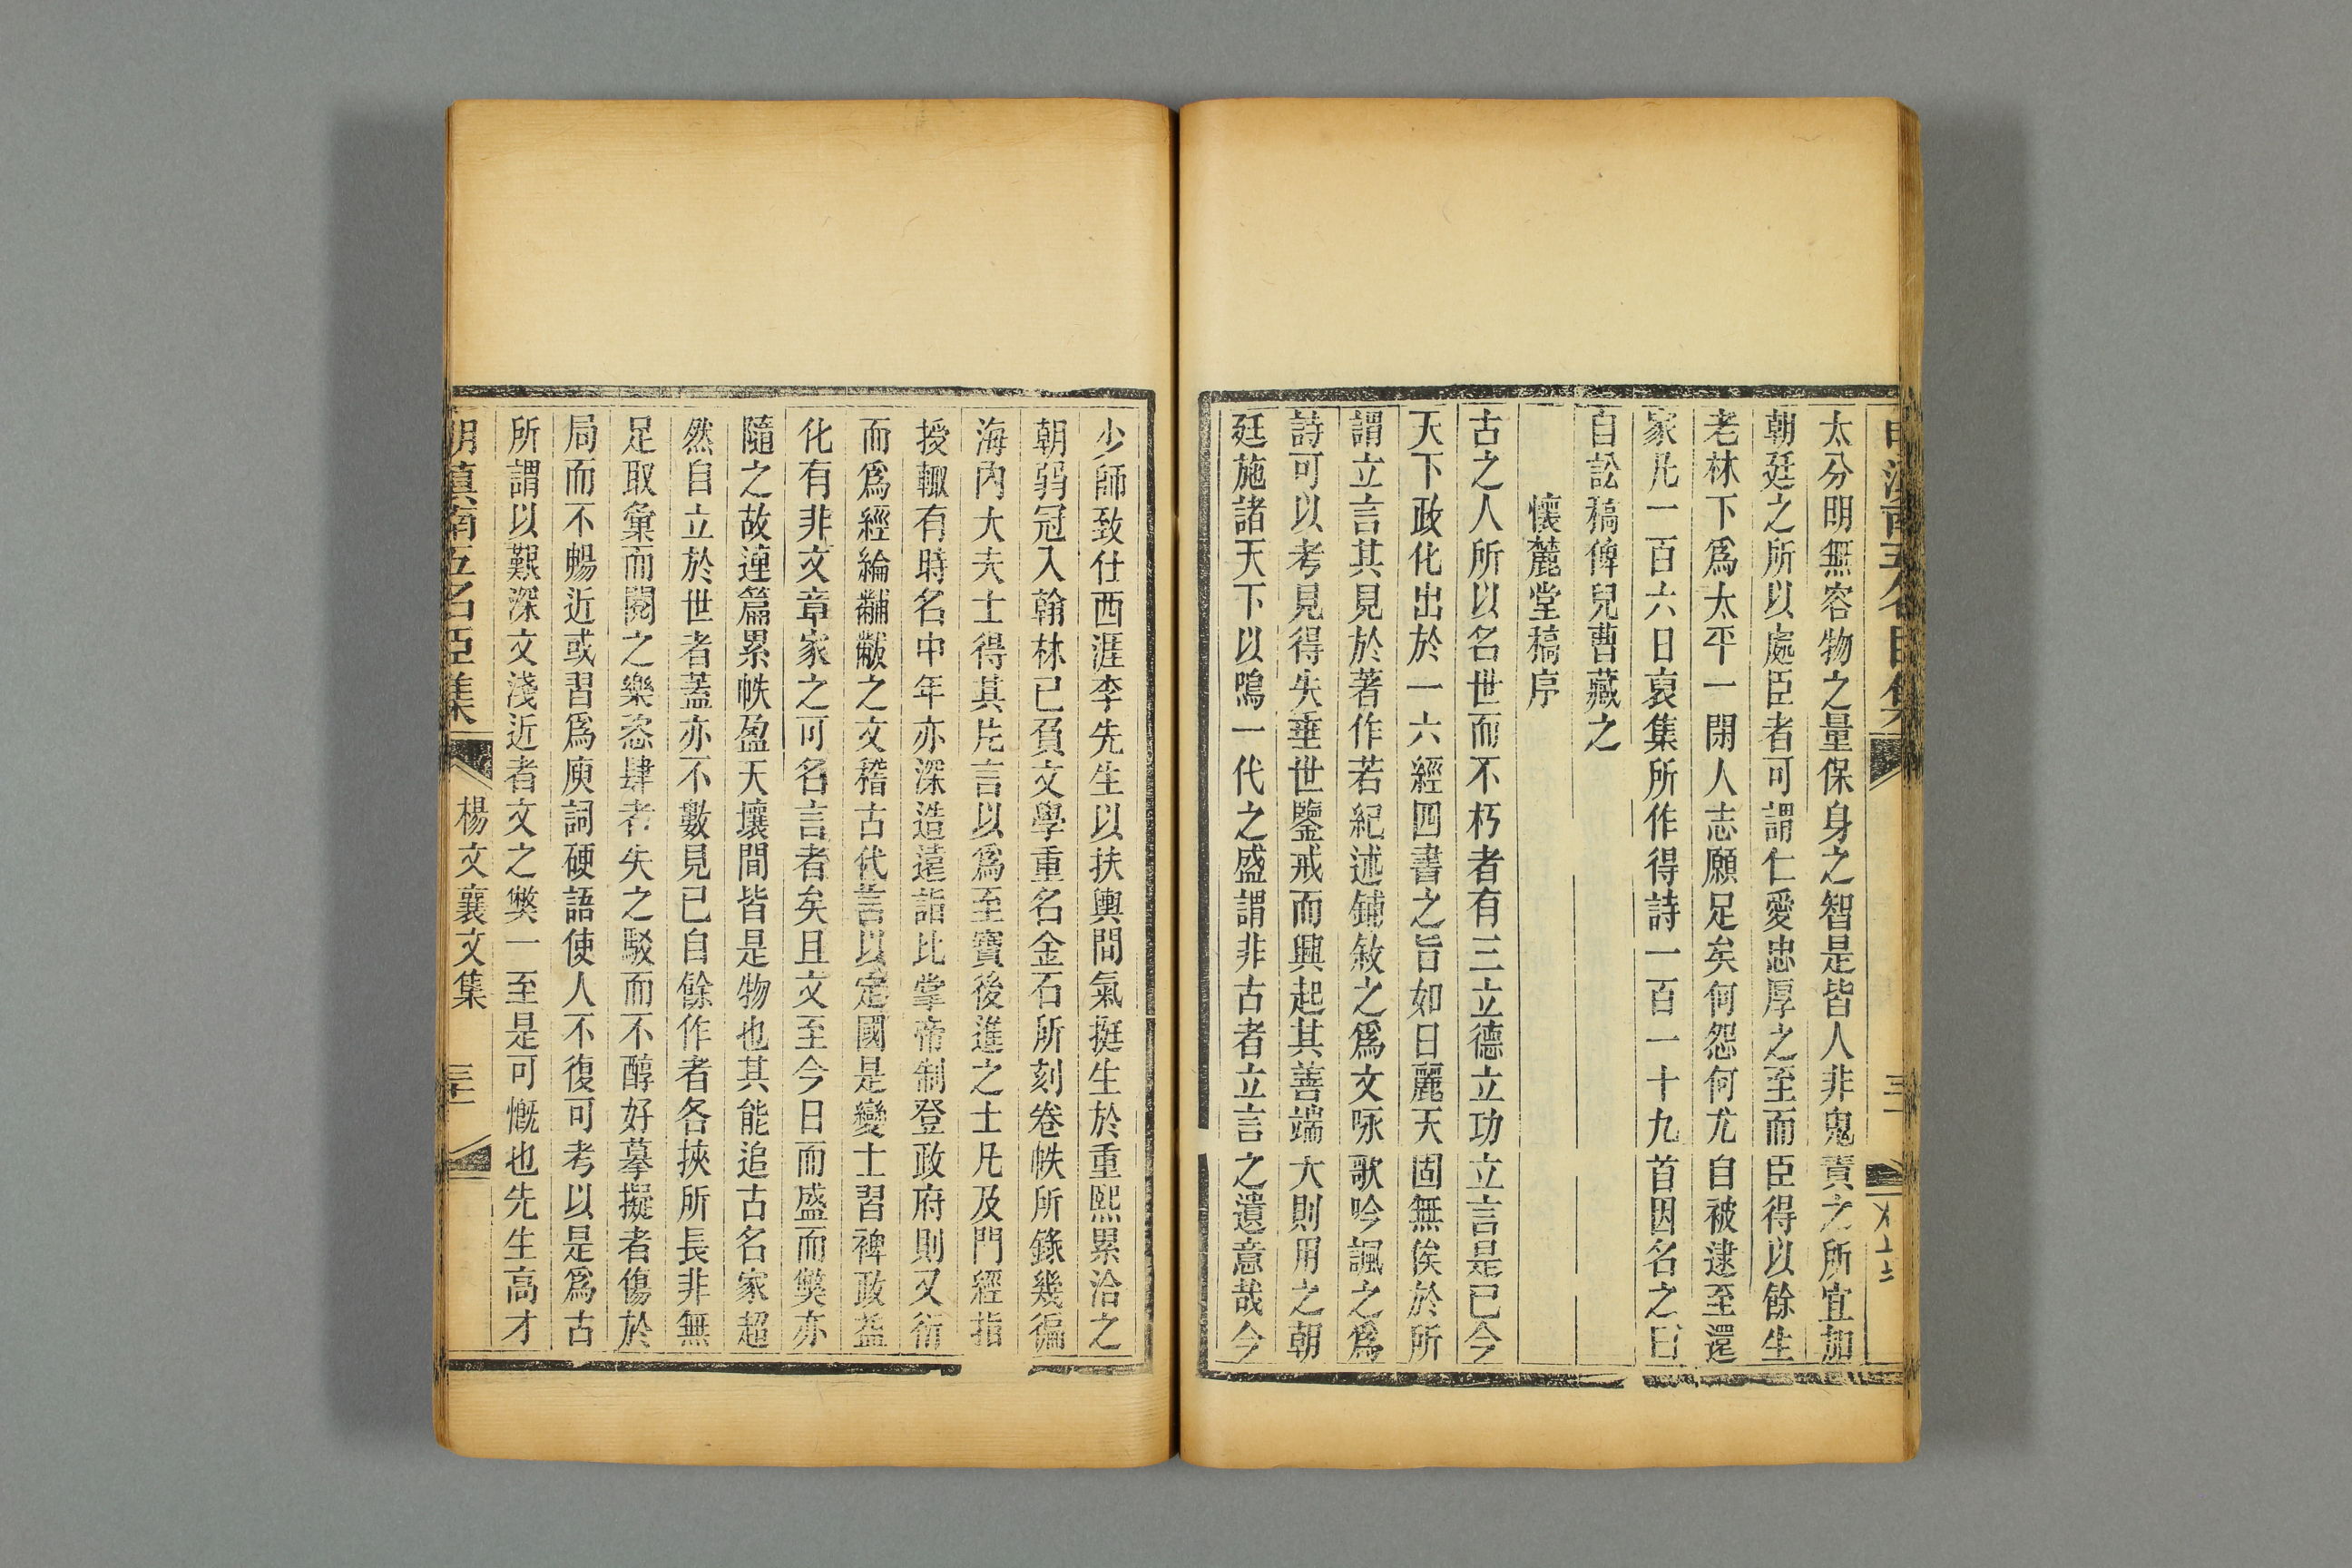 太分明無容物之量保身之智是皆人非鬼責之所宜加
朝廷之所以處臣者可謂仁愛忠厚之至而臣得以餘生
老林下爲太平一閒人志願足矣何怨何尤自被逮至還
家凡一百六日裒集所作得詩一百一十九首因名之曰
自訟稿俾兒曹藏之
懷麓堂稿序
古之人所以名世而不朽者有三立德立功立言是已今
天下政化出於一六經四書之旨如日麗天固無俟於所
謂立言其見於著作若紀述鋪敘之爲文咏歌吟諷之爲
詩可以考見得失垂世鑒戒而興起其善端大則用之朝
廷施諸天下以鳴一代之盛謂非古者立言之遺意哉今
少師致仕西涯李先生以扶輿間氣挺生於重熙累洽之
朝弱冠入翰林已負文學重名金石所刻卷帙所錄幾徧
海內大夫士得其片言以爲至寶後進之士凡及門經指
授輙有時名中年亦深造遠詣比掌帝制登政府則又衍
而爲經綸黼黻之文稽古代言以定國是變士習裨政益
化有非文章家之可名言者矣且文至今日而盛而獘亦
隨之故連篇累帙盈天壤間皆是物也其能追古名家超
然自立於世者蓋亦不數見已自餘作者各挾所長非無
足取彙而閱之樂恣肆者失之駁而不醇好摹擬者傷於
局而不暢近或習爲庾詞硬語使人不復可考以是爲古
所謂以艱深文淺近者文之獘一至是可慨也先生高才
明滇南五名臣集
楊文襄文集